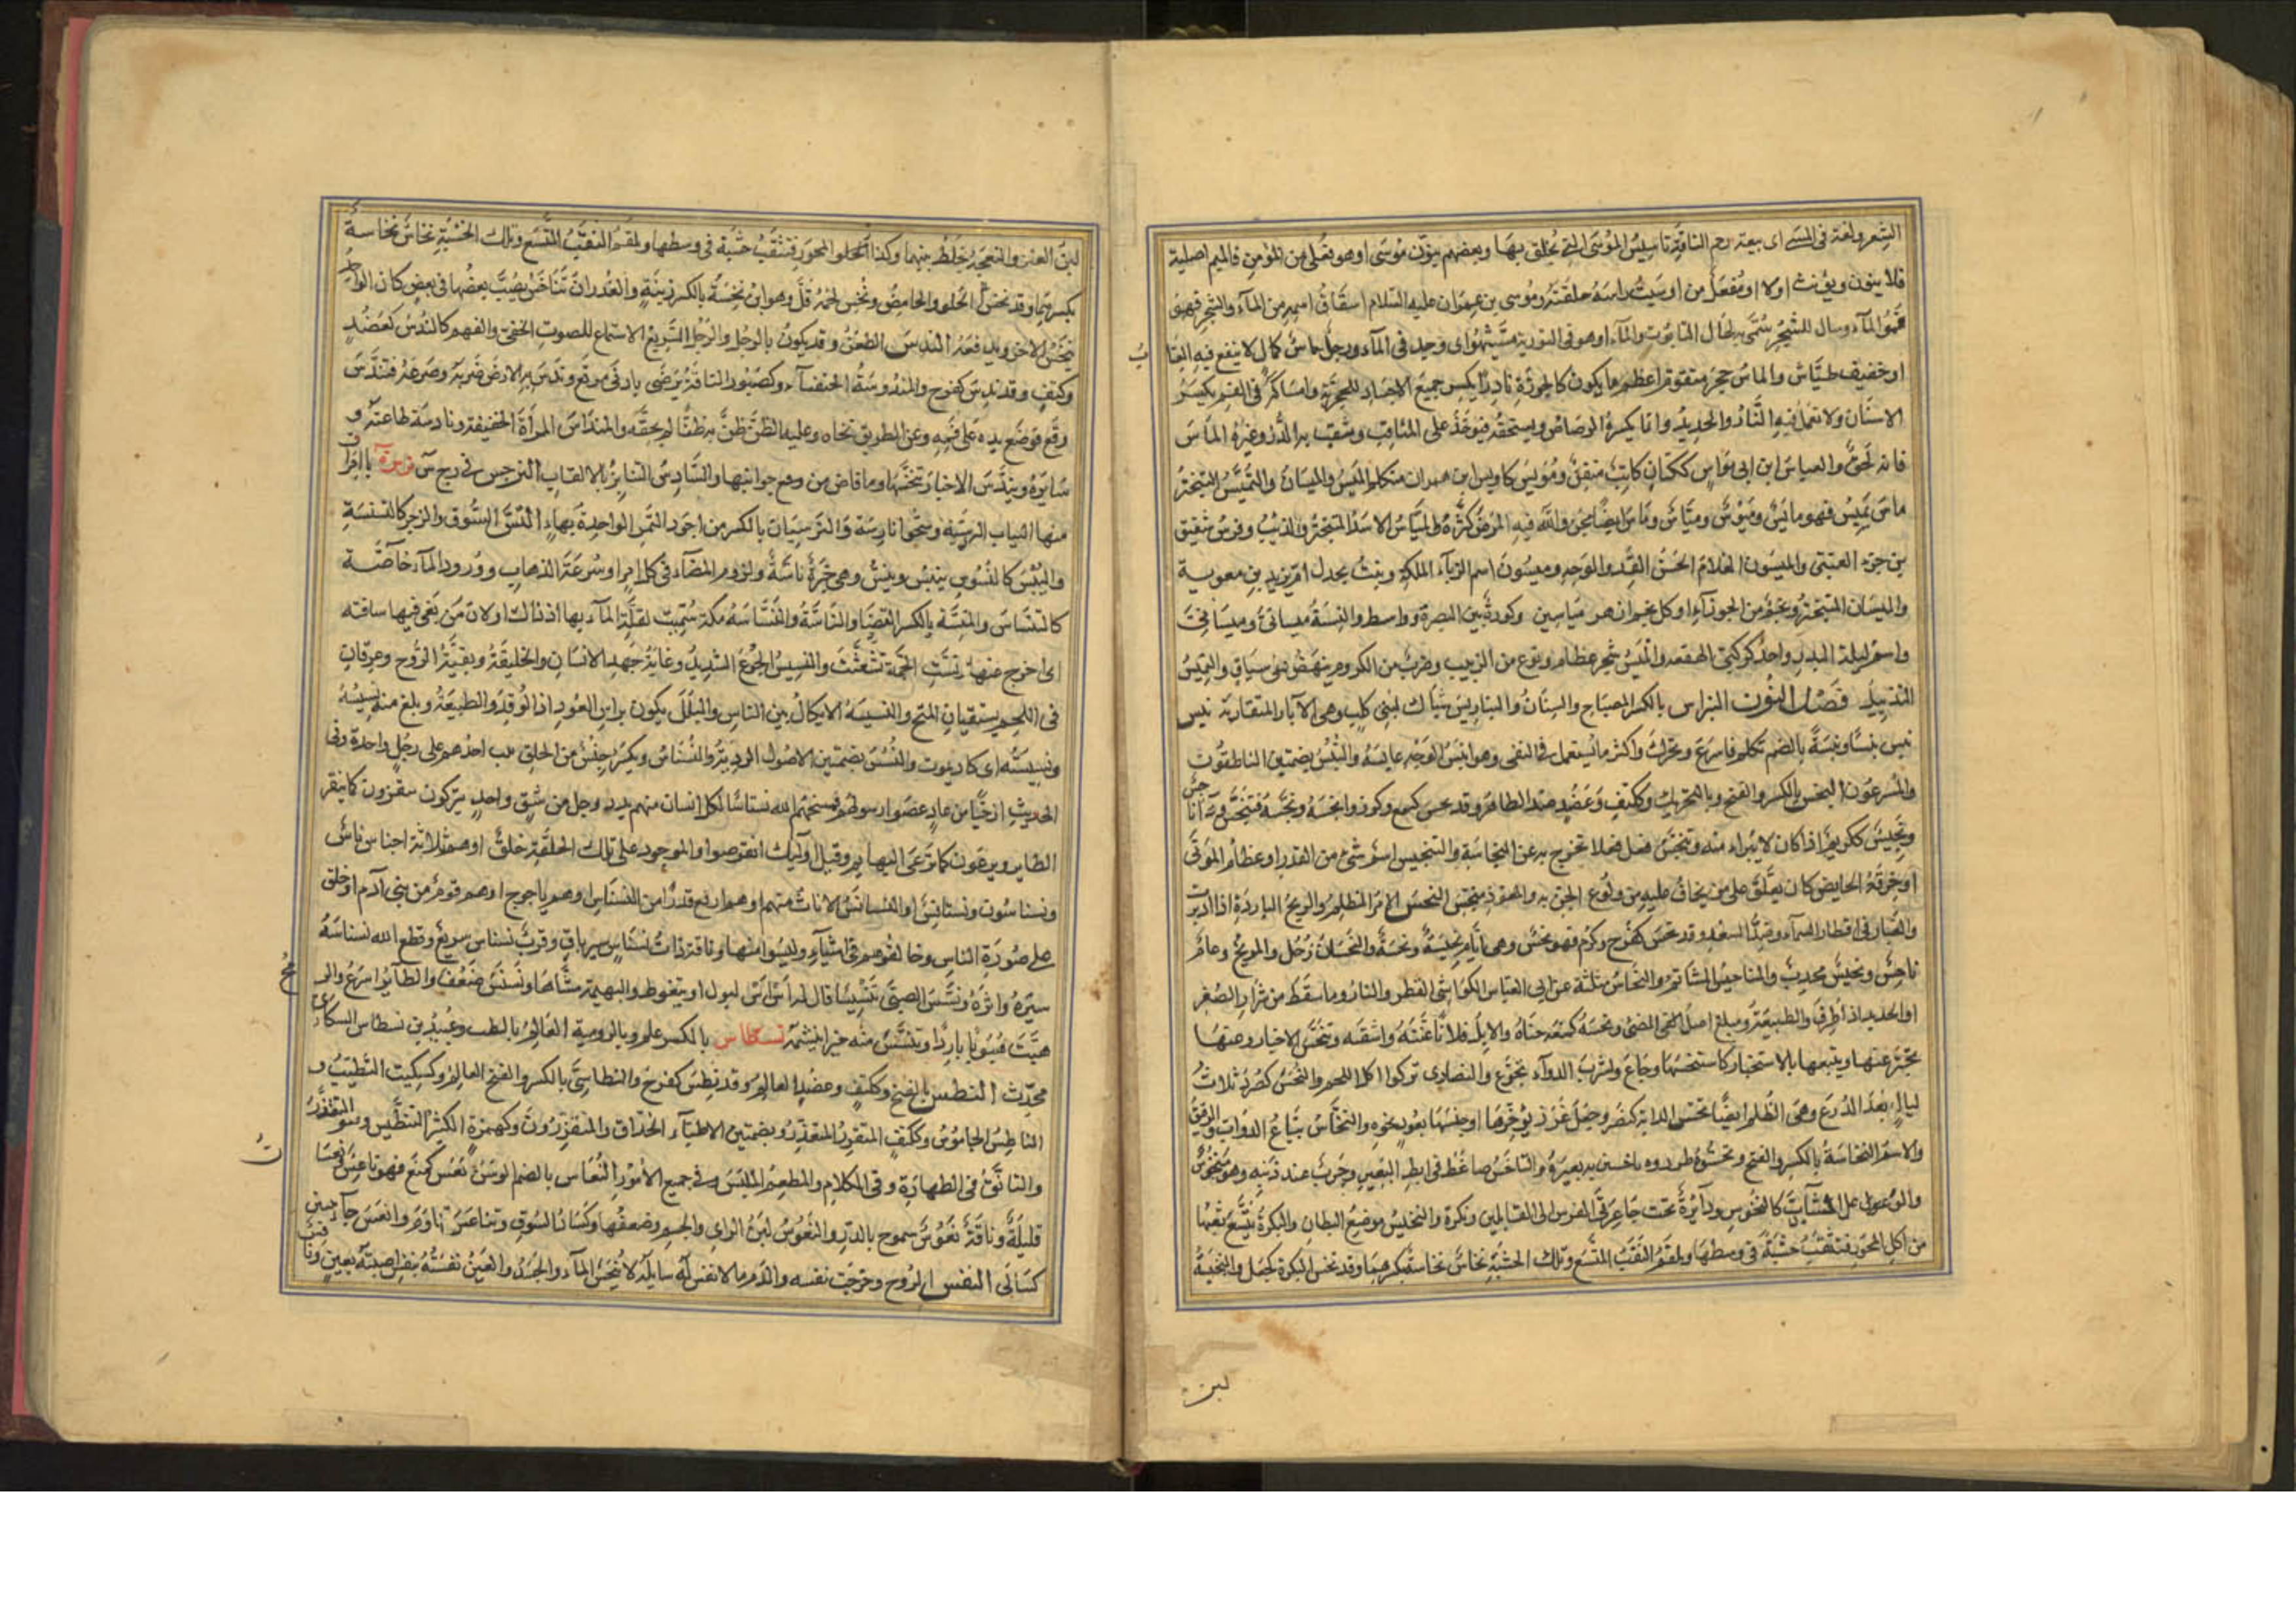 الشعر ولغة في المسي اى بيعة رحم الناقة تاسيس الموسى التي يحلق بها وبعضهم ينون موسى اوهو فعلى من المؤمن فالميم اصلية
فلا ينون ويؤنث اولا او مفعل من اوسيت راسه حلقته وموسى بن عمران عليه السلام اشتقاق اسمه من المآء والشجر فهو
المآء وسا للشجر سمى به لحال التابوت والمآء اوهو في التورية مشيتيهو اى وجد في المآء ورجل ماس كمال لا ينفع فيه العتا
اوخفيف طياش والماس حجر متقوم اعظم ما يكون كالجوزة نادرا يكسر جميع الاجساد الحجرية وامساكه في الفم يكسر
الاسنان ولا تعمل فيه النار والحديد وانما يكسره الرصاص ويسحقه فيؤخذ على المثاقب ويثقب به الدر وغيره الماس
فانه لحن والعباس ابن ابى مواس ككتان كاتب متقن ومويس كاويس ابن عمران متكلم الميس والميسان والتميس التبختر
ماس يميس فهو مائس وميوس ومياس وماس ايضا مجن والله فيه المرض كثره والمياس الاسد المتبختر والذئب وفرس شقيق
بن جزء العتبى والميسون الغلام الحسن القد والوجه وميسون اسم الزباء الملكة وبنت بحدل ام يزيد بن معوية
والميسان المتبختر ونجم من الجوزآء او كل نجم زاهر مياسين وكورة بين البصرة وواسط والنسبة ميسانى وميسنانى
واسم ليلة البدر واحد كوكبى الهقعة والميس شجر عظام ونوع من الزبيب وضرب من الكروم ينهض على ساق والتميس
التذييل فصل النون النبراس بالكسر المصباح والسنان والنباريس شباك لبنى كليب وهى الآبار المتقاربة نبس
نبس نبسا ونبسة بالضم تكلم فاسرع وتحرك واكثر ما يستعمل في النفى وهو انبس الوجه عابسه والنبس بضمتين الناطقون
والمسرعون النجس بالكسر والفتح وبالتحريك وككتف وعضد ضد الطاهر وقد نجس كسمع وكرم وانجسه ونجسه فتنجس
ونجيس ككريم اذا كان لا يبراء منه وتنجس فعل فعلا يخرج به عن النجاسة والتنجيس اسم شئ من القذر او عظام الموتى
اوخرقة الحايض كان يعلق على من يخاف عليه من ولوع الجن به والمعوذ منجس النحس الامر المظلم والريح الباردة اذا ادبرت
والغبار في اقطار السمآء وضد السعد وقد نحس كفرح وكرم فهو نحس وهى ايام نحيسة ونحسة والنحسان زحل والمريخ وعام
ناحس ونحيس مجدب والمناحس المشائم والنحاس مثلثة عن ابى العباس الكواشى القطر والنار وما سقط من شرار الصفر
او الحديد اذا طرق والطبيعة ومبلغ اصل الشئ ونحسه كمنعه جفاه والابل فلانا عنته واشقته وتنحس الاخبار وعنها
تخبر عنها ويتبعها بالاستخبار كاستنحسها وجاع ولشرب الدوآء تجوع والنصارى تركوا اكل اللحم والنحس كصرد ثلاث
ليال بعد الدرع وهى الظلم ايضا نخس الدابة كنصر وجعل غرز مؤخرها او جنبها بعود ونحوه والنخاس بياع الدواب والرقيق
والاسم النخاسة بالكسر والفتح ونخسوه طردوه ناخسين به بعيره والناخس ضاغط في ابط البعير وجرب عند ذنبه وهو منخوس
والوعول الشاب كالنخوس ودآئرة تحت جاعرتى الفرس الى الفائلين وتكره والنخيس موضع البطان والبكرة يتسع ثقبها
من اكل المحور فتثقب خشبة في وسطها وتلقم الثقب المتسع وتلك الخشبة نخاس نخاسة بكسرهما وقد نخس البكرة كجعل والنخيسة
لبن
لبن العنز والنعجة يخلط بينهما وكذا الحلو المحور فتثقب خشبة في وسطها ولقم الثقب المتسع وتلك الخشبة نخاس نخاسة
بكسرهما وقد نخس الحلو والحامض ونخس لحمه قل وهو ابن نخسة بالكسر زنية والغدران تناخس يصب بعضها في بعض كان الواحد
ينخس الاخر ويدفعه الندس الطعن وقد يكون بالرجل والرجل السريع الاستماع للصوت الخفى والفهم كالندس كعضد
وككتف وقد ندس كفرح والمندوسة الخنفسآء وكصبور الناقة ترضى بادنى مرتع وندس به الارض ضربه وصرعه فتندس
وقع فوضع يده على فمه وعن الطريق نحاه وعليه الظن ظن به ظنا لم يحقه والمنداس المرأة الخفيفة ونادسة طاعنه و
سايره ويتندس الاخبار تنخسها وما فاض من وسع جوانبها والتنادس التنابز بالالقاب النرجس في رج س نرسة بالعراق
منها الثياب النرسية وسموا نارسة والنرسيان بالكسر من اجود التمر الواحدة بهاء النس السوق والزجر كالنسنسة
واليبس كالنسوس ينس وينس وهى خبزة ناسة ولزوم المضآء في كل امر او سرعة الذهاب وورود المآء خاصة
كالتنساس والمنسة بالكسر العصا والناسة والنساسة مكة سميت لقلة المآء بها اذ ذاك اولان من بغى فيها ساقته
اى اخرج عنها نست الجمة تشعثت والنسيس الجوع الشديد وغاية جهد الانسان والخليقة وبقية الروح وعرقان
في اللحم يسقيان المخ والنسيسة الايكال بين الناس والبلل يكون براس العود اذا اوقد والطبيعة وبلغ منه نسيسه
ونسيسته اى كاد يموت والنسس بضمتين الاصول الردية والنسناس ويكسر جنس من الخلق يثب احدهم على رجل واحدة وفى
الحديث ان حيا من عاد عصوا رسولهم فمسخهم الله نسناسا لكل انسان منهم يد ورجل من شق واحد ينقزون كما ينقز
الطاير ويرعون كما ترعى البهايم وقيل اوليك انقرضوا والموجود على تلك الخلقة خلق اوهم ثلاثة اجناس ناس
ونسناس ونسانس او النسانس الاناث منهم او هم ارفع قدرا من النسناس اوهم ياجوج اوهم قوم من بنى آدم او خلق
على صورة الناس وخالفوهم في اشيآء وليسوا منها وناقة ذات نسناس سير باق وقرب نسناس سريع وقطع الله نسناسه
سيره واثره ونسس الصبى تنسيسا قال له اس اس ليبول او يتغوط والبهيمة مشاها ونسنس ضعف والطآئر اسرع والريح
هبت هبوبا باردا وتنسس منه خبرا تنسمه نسطاس بالكسر علم وبالرومية العالم بالطب وعبيد بن نسطاس البكائى
محدث النطس بالفتح وككتف وعضد العالم وقد نطس كفرح والنطاسى بالكسر والفتح العالم وكسكيت المتطبب و
الناطس الجاسوس وككتف المتقزز المتقذر وبضمتين الاطبآء الحذاق والمتقززون وكهمزة الكثير التنطس وهو التقذر
والتانق في الطهارة وفى الكلام والمطعم والملبس وفى جميع الامور النعاس بالضم الوسن نعس كمنع فهو ناعس
قليلة وناقة نعوس سموح بالدر والنعوس لين الراى والجسم وضعفهما وكساد السوق وتناعس تناوم وانعس جآء ببنين
كسالى النفس الروح وخرجت نفسه والدم ما لا نفس له سايلة لا ينجس المآء والجسد والعين نفسته بنفس اصبته بعين